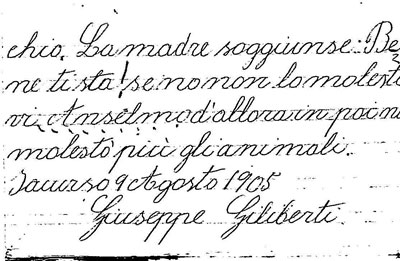 chio. La madre soggiunse: Be
ne ti sta! se no non lo molesta
vi. Anselmo d'allora in poi no
molestò più gli animali.
Iacurso 9 Agosto 1905
Giuseppe Giliberti.